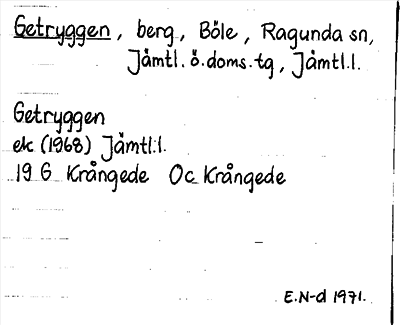 Getryggen, berg, Böle, Ragunda sn,
Jämtl. ö. doms. tg, Jämtl.l.
Getryggen
ek (1968) Jämtl:l.
19 G Krångede Oc Krångede
E.N-d 1971.